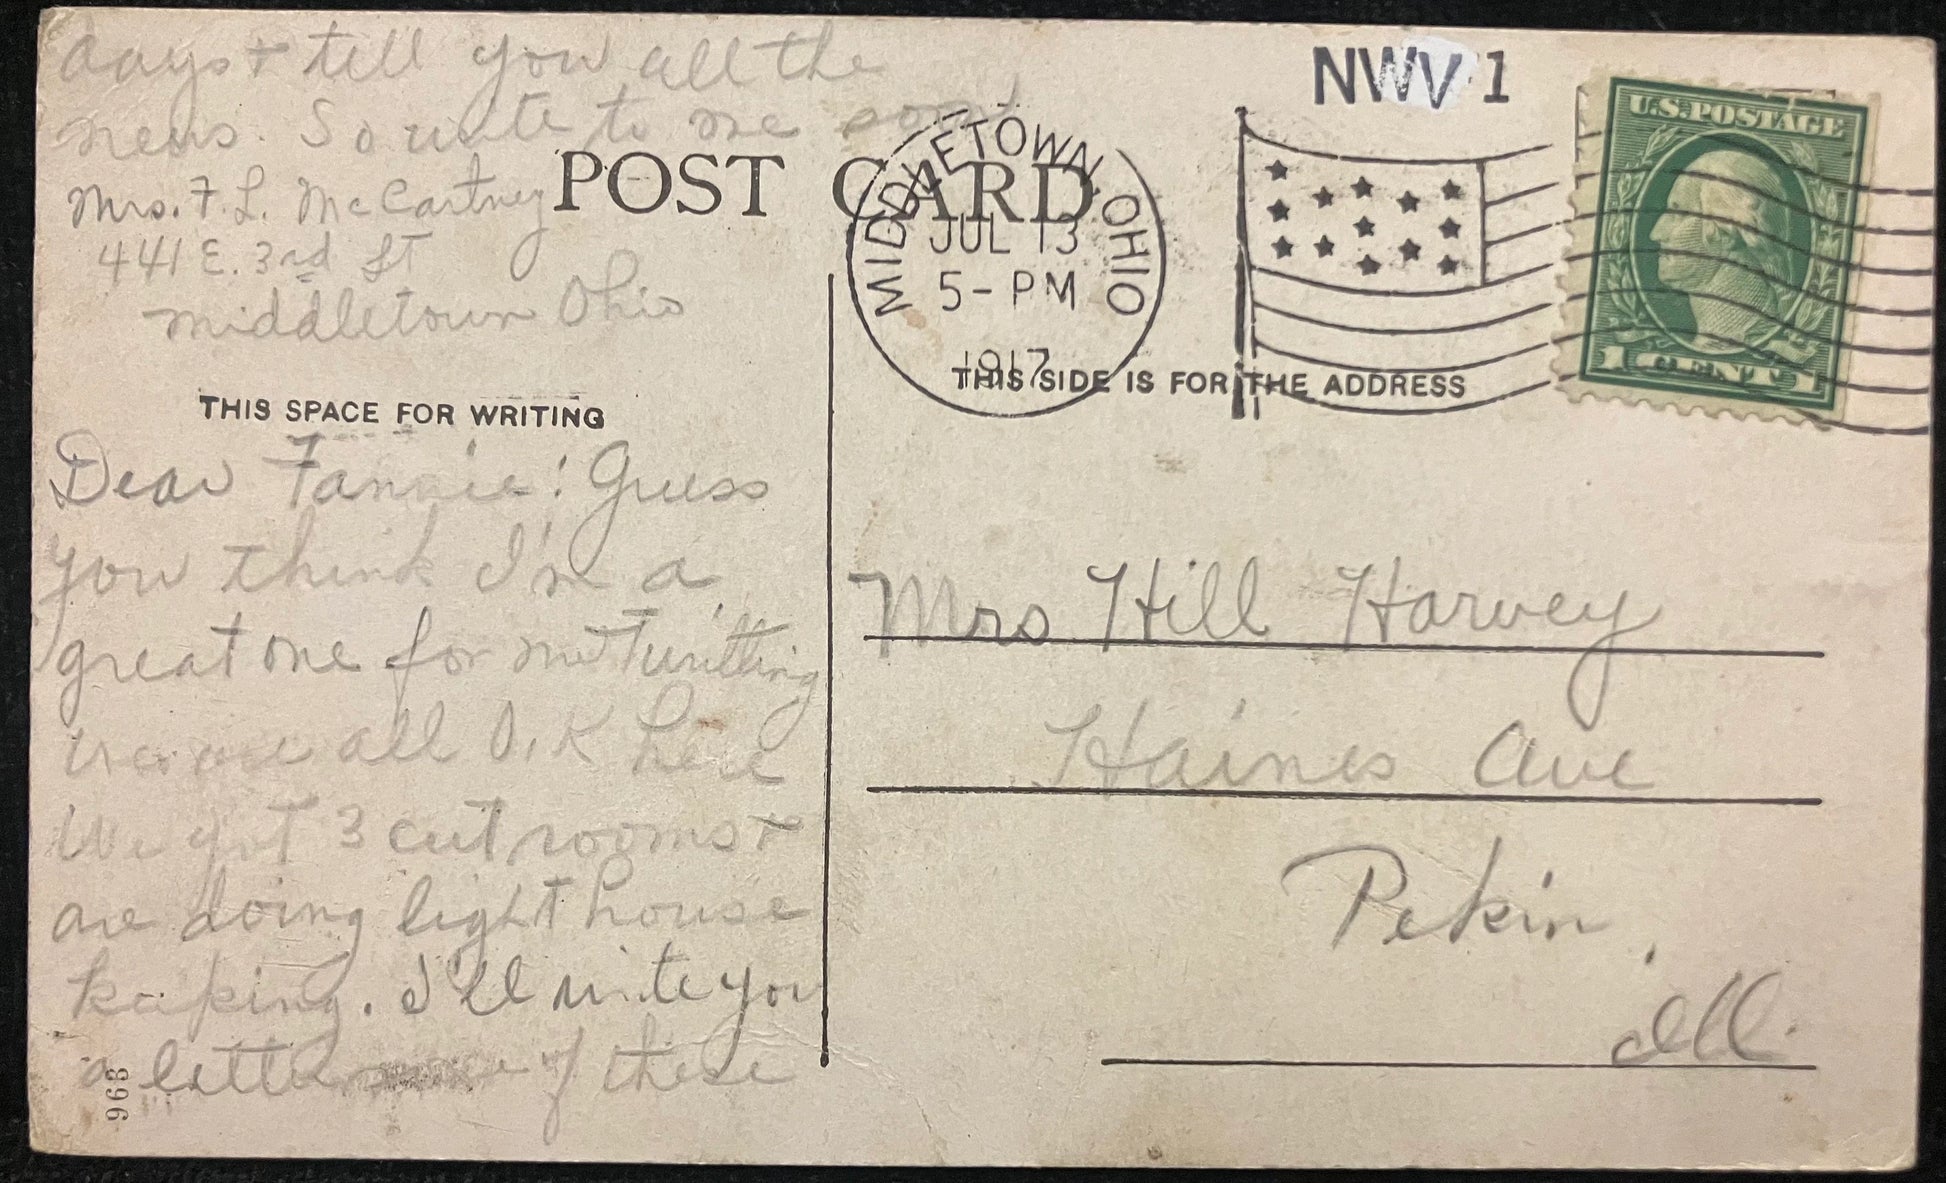 days + tell you all the
news. So write to me soon
Mrs. F. L. McCartney
441 E. 3rd St
Middletown Ohio
POST CARD
NWV 1
MIDDLETOWN, OHIO
JUL 13
5-PM
1917
U.S. POSTAGE
1 CENT 1
THIS SPACE FOR WRITING
THIS SIDE IS FOR THE ADDRESS
Dear Fannie! Guess
you think I'm a
great one for not writting
we are all O.K here
We got 3 cut rooms +
are doing light house
keeping. I'll write you
a letter one of these
968
Mrs Hill Harvey
Haines Ave
Pekin,
Ill.